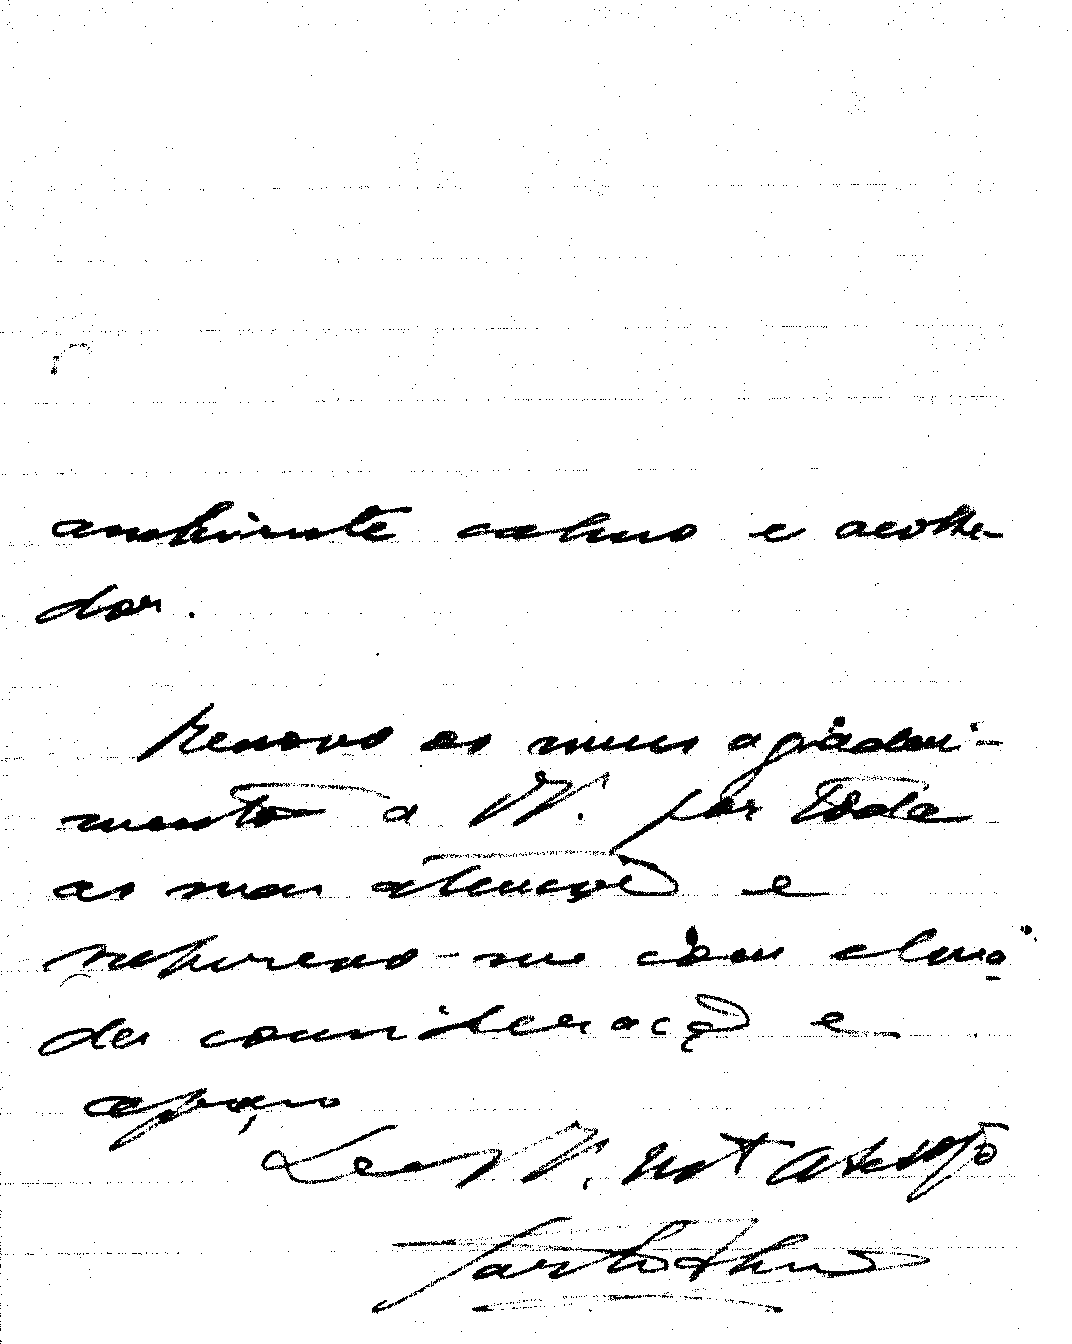 ambiente calmo e acolhe-
dor.
Renovo os meus agradeci-
mento a V. por toda
as suas atenções e
subscrevo-me com eleva
da consideração e
apreço
De V. Mto Atº